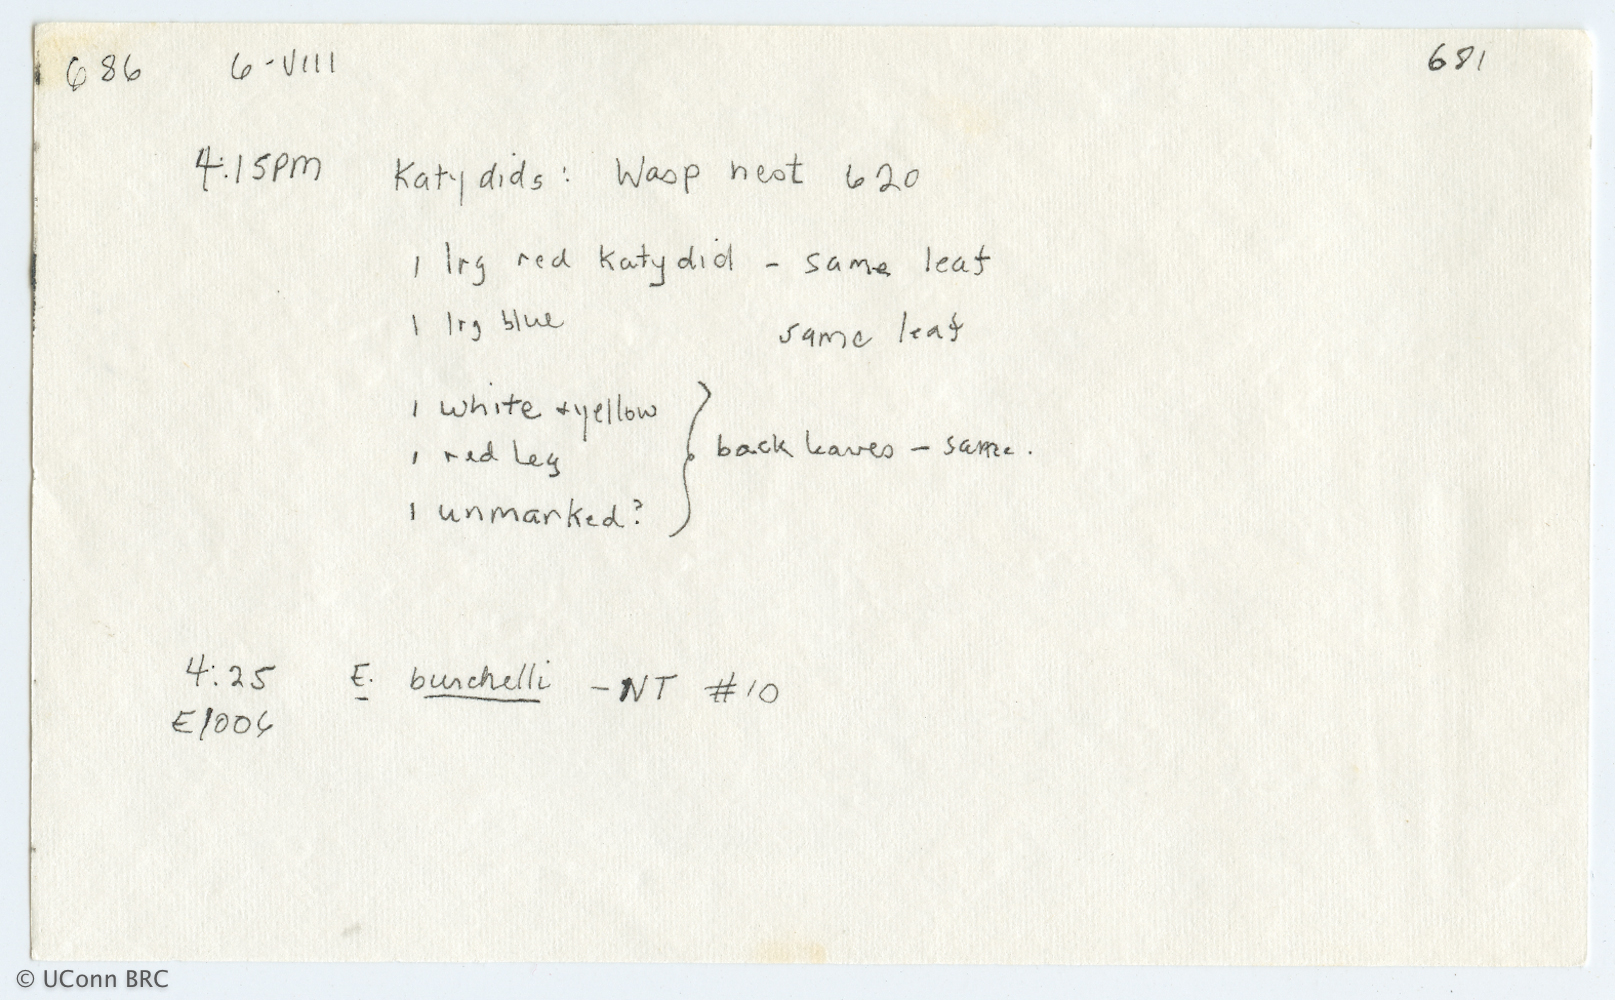 686 6-VIII 681
4:15PM Katydids: Wasp nest 620
1 lrg red Katydid - same leaf
1 lrg blue same leaf
1 white + yellow
1 red leg } back leaves - same.
1 unmarked?
4:25 E. burchelli - NT #10
E1006
© UConn BRC